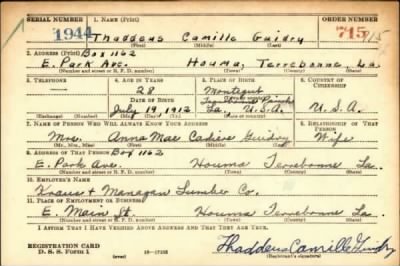 SERIAL NUMBER 1. NAME (Print) ORDER NUMBER
1944 Thaddeus Camille Guidry 715 715
(First) (Middle) (Last)
2. ADDRESS (Print) Box 1162
E. Park Ave. Houma, Terrebonne, La.
(Number and street or R. F. D. number) (Town) (County) (State)
3. TELEPHONE 4. AGE IN YEARS 5. PLACE OF BIRTH 6. COUNTRY OF CITIZENSHIP
28 Montegut
Terrebonne Parish
DATE OF BIRTH (Town or county)
July 19, 1912 La., U.S.A. U.S.A.
(Exchange) (Number) (Mo.) (Day) (Yr.) (State or country)
7. NAME OF PERSON WHO WILL ALWAYS KNOW YOUR ADDRESS 8. RELATIONSHIP OF THAT PERSON
Mrs. Anna Mae Cadiere Guidry Wife
(Mr., Mrs., Miss) (First) (Middle) (Last)
9. ADDRESS OF THAT PERSON Box 1162
E. Park Ave. Houma Terrebonne La.
(Number and street or R. F. D. number) (Town) (County) (State)
10. EMPLOYER'S NAME
Kraus & Managan Lumber Co.
11. PLACE OF EMPLOYMENT OR BUSINESS
E. Main St. Houma Terrebonne La.
(Number and street or R. F. D. number) (Town) (County) (State)
I AFFIRM THAT I HAVE VERIFIED ABOVE ANSWERS AND THAT THEY ARE TRUE.
REGISTRATION CARD
D. S. S. Form 1 (over) Thaddeus Camille Guidry
(Registrant's signature)